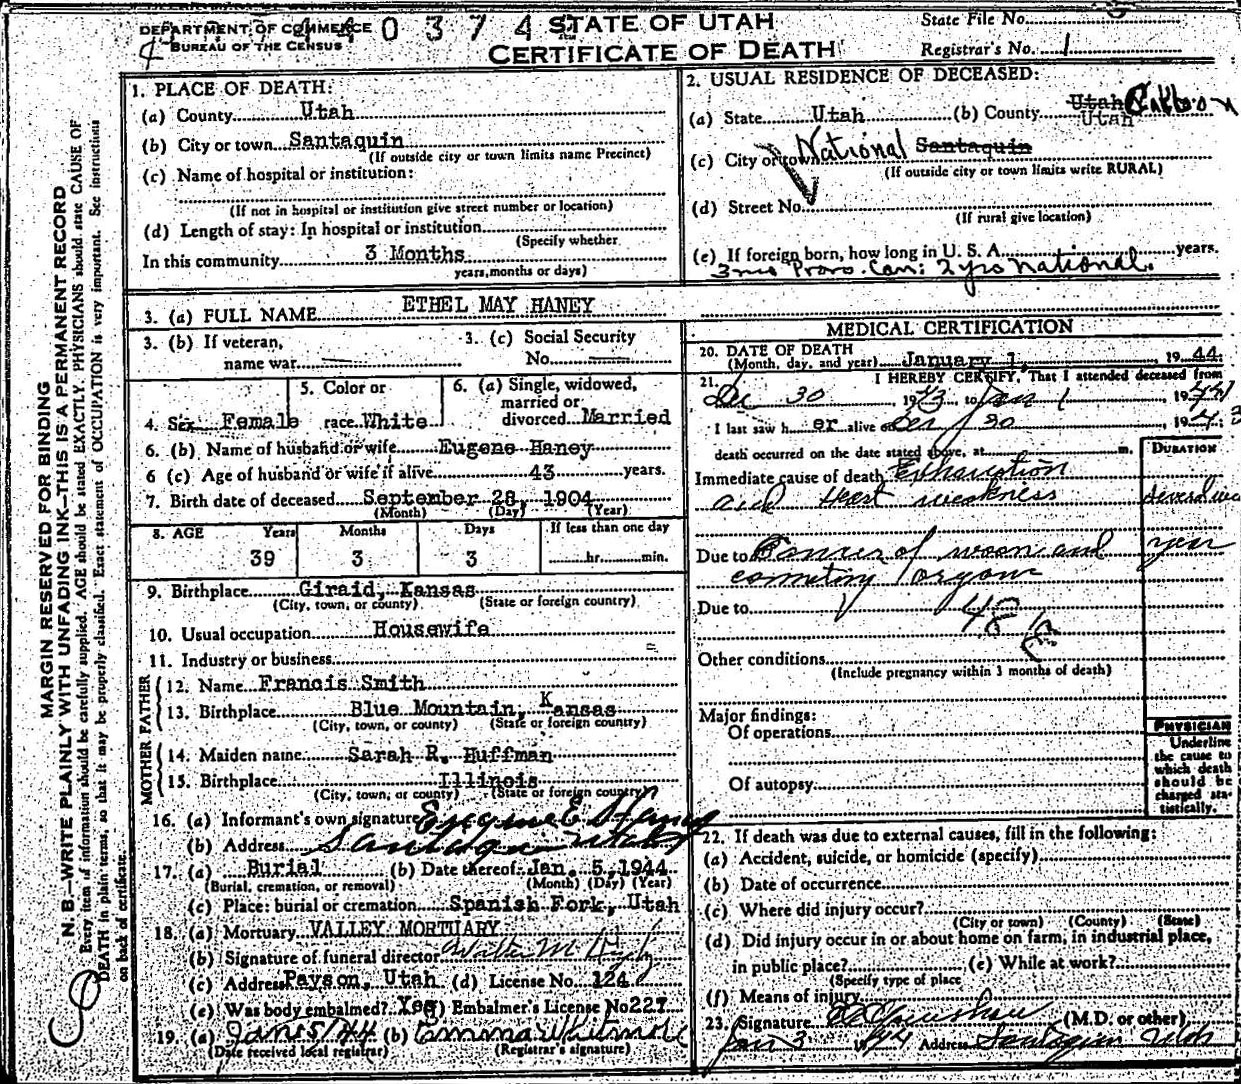 DEPARTMENT OF COMMERCE
BUREAU OF THE CENSUS
0 3 7 4
STATE OF UTAH
CERTIFICATE OF DEATH
State File No.
Registrar's No. 1
MARGIN RESERVED FOR BINDING
N. B.—WRITE PLAINLY WITH UNFADING INK—THIS IS A PERMANENT RECORD
Every item of information should be carefully supplied. AGE should be stated EXACTLY. PHYSICIANS should state CAUSE OF
DEATH in plain terms, so that it may be properly classified. Exact statement of OCCUPATION is very important. See instructions
on back of certificate.
1. PLACE OF DEATH:
(a) County Utah
(b) City or town Santaquin
(If outside city or town limits name Precinct)
(c) Name of hospital or institution:
(If not in hospital or institution give street number or location)
(d) Length of stay: In hospital or institution
(Specify whether
In this community 3 Months
years, months or days)
2. USUAL RESIDENCE OF DECEASED:
(a) State Utah (b) County Utah Utah Carbon
(c) City or town National Santaquin
(If outside city or town limits write RURAL)
(d) Street No.
(If rural give location)
(e) If foreign born, how long in U. S. A. years.
3 mo Provo. Can: 2 yrs National.
3. (a) FULL NAME ETHEL MAY HANEY
3. (b) If veteran,
name war
3. (c) Social Security
No.
4. Sex Female
5. Color or
race White
6. (a) Single, widowed,
married or
divorced Married
6. (b) Name of husband or wife Eugene Haney
6 (c) Age of husband or wife if alive 43 years.
7. Birth date of deceased September 28, 1904
(Month) (Day) (Year)
8. AGE Years Months Days If less than one day
39 3 3 hr. min.
9. Birthplace Giraid, Kansas
(City, town, or county) (State or foreign country)
10. Usual occupation Housewife
11. Industry or business
FATHER
12. Name Francis Smith
13. Birthplace Blue Mountain, Kansas
(City, town, or county) (State or foreign country)
MOTHER
14. Maiden name Sarah R. Huffman
15. Birthplace Illinois
(City, town, or county) (State or foreign country)
16. (a) Informant's own signature Eugene E. Haney
(b) Address Santaquin Utah
17. (a) Burial (b) Date thereof Jan. 5, 1944
(Burial, cremation, or removal) (Month) (Day) (Year)
(c) Place: burial or cremation Spanish Fork, Utah
18. (a) Mortuary VALLEY MORTUARY
(b) Signature of funeral director Walter M
(c) Address Payson, Utah (d) License No. 124
(e) Was body embalmed? Yes Embalmer's License No 227
19. (a) Jan 5/44 (b) Emma Whitmore
(Date received local registrar) (Registrar's signature)
MEDICAL CERTIFICATION
20. DATE OF DEATH
(Month, day, and year) January 1, 19 44
21. I HEREBY CERTIFY, That I attended deceased from
Dec 30 1943 to Jan 1, 1944
I last saw her alive on Dec 30, 1943
death occurred on the date stated above, at m.
DURATION
Immediate cause of death Exhaustion
and Heart weakness several
Due to Cancer of and year
organs
Due to
48
Other conditions
(Include pregnancy within 3 months of death)
Major findings:
Of operations
Of autopsy
PHYSICIAN
Underline
the cause to
which death
should be
charged sta-
tistically.
22. If death was due to external causes, fill in the following:
(a) Accident, suicide, or homicide (specify)
(b) Date of occurrence
(c) Where did injury occur?
(City or town) (County) (State)
(d) Did injury occur in or about home on farm, in industrial place,
in public place? (e) While at work?
(Specify type of place
(f) Means of injury
23. Signature (M.D. or other)
Jan 3 1944 Address Santaquin Utah